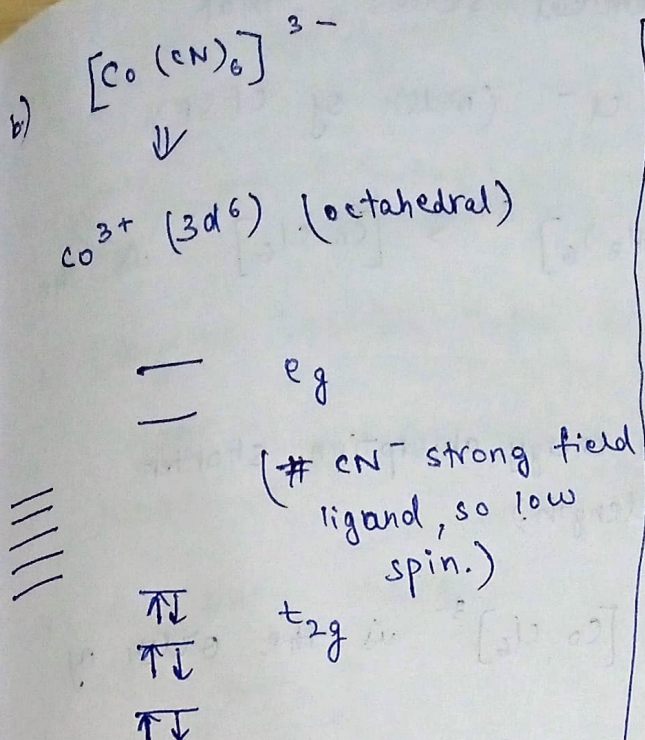 b.) [Co(CN)6]3-
⇓
Co3+ (3d6) (octahedral)
eg
(# CN- strong field
ligand, so low
spin.)
↑↓ t2g
↑↓
↑↓